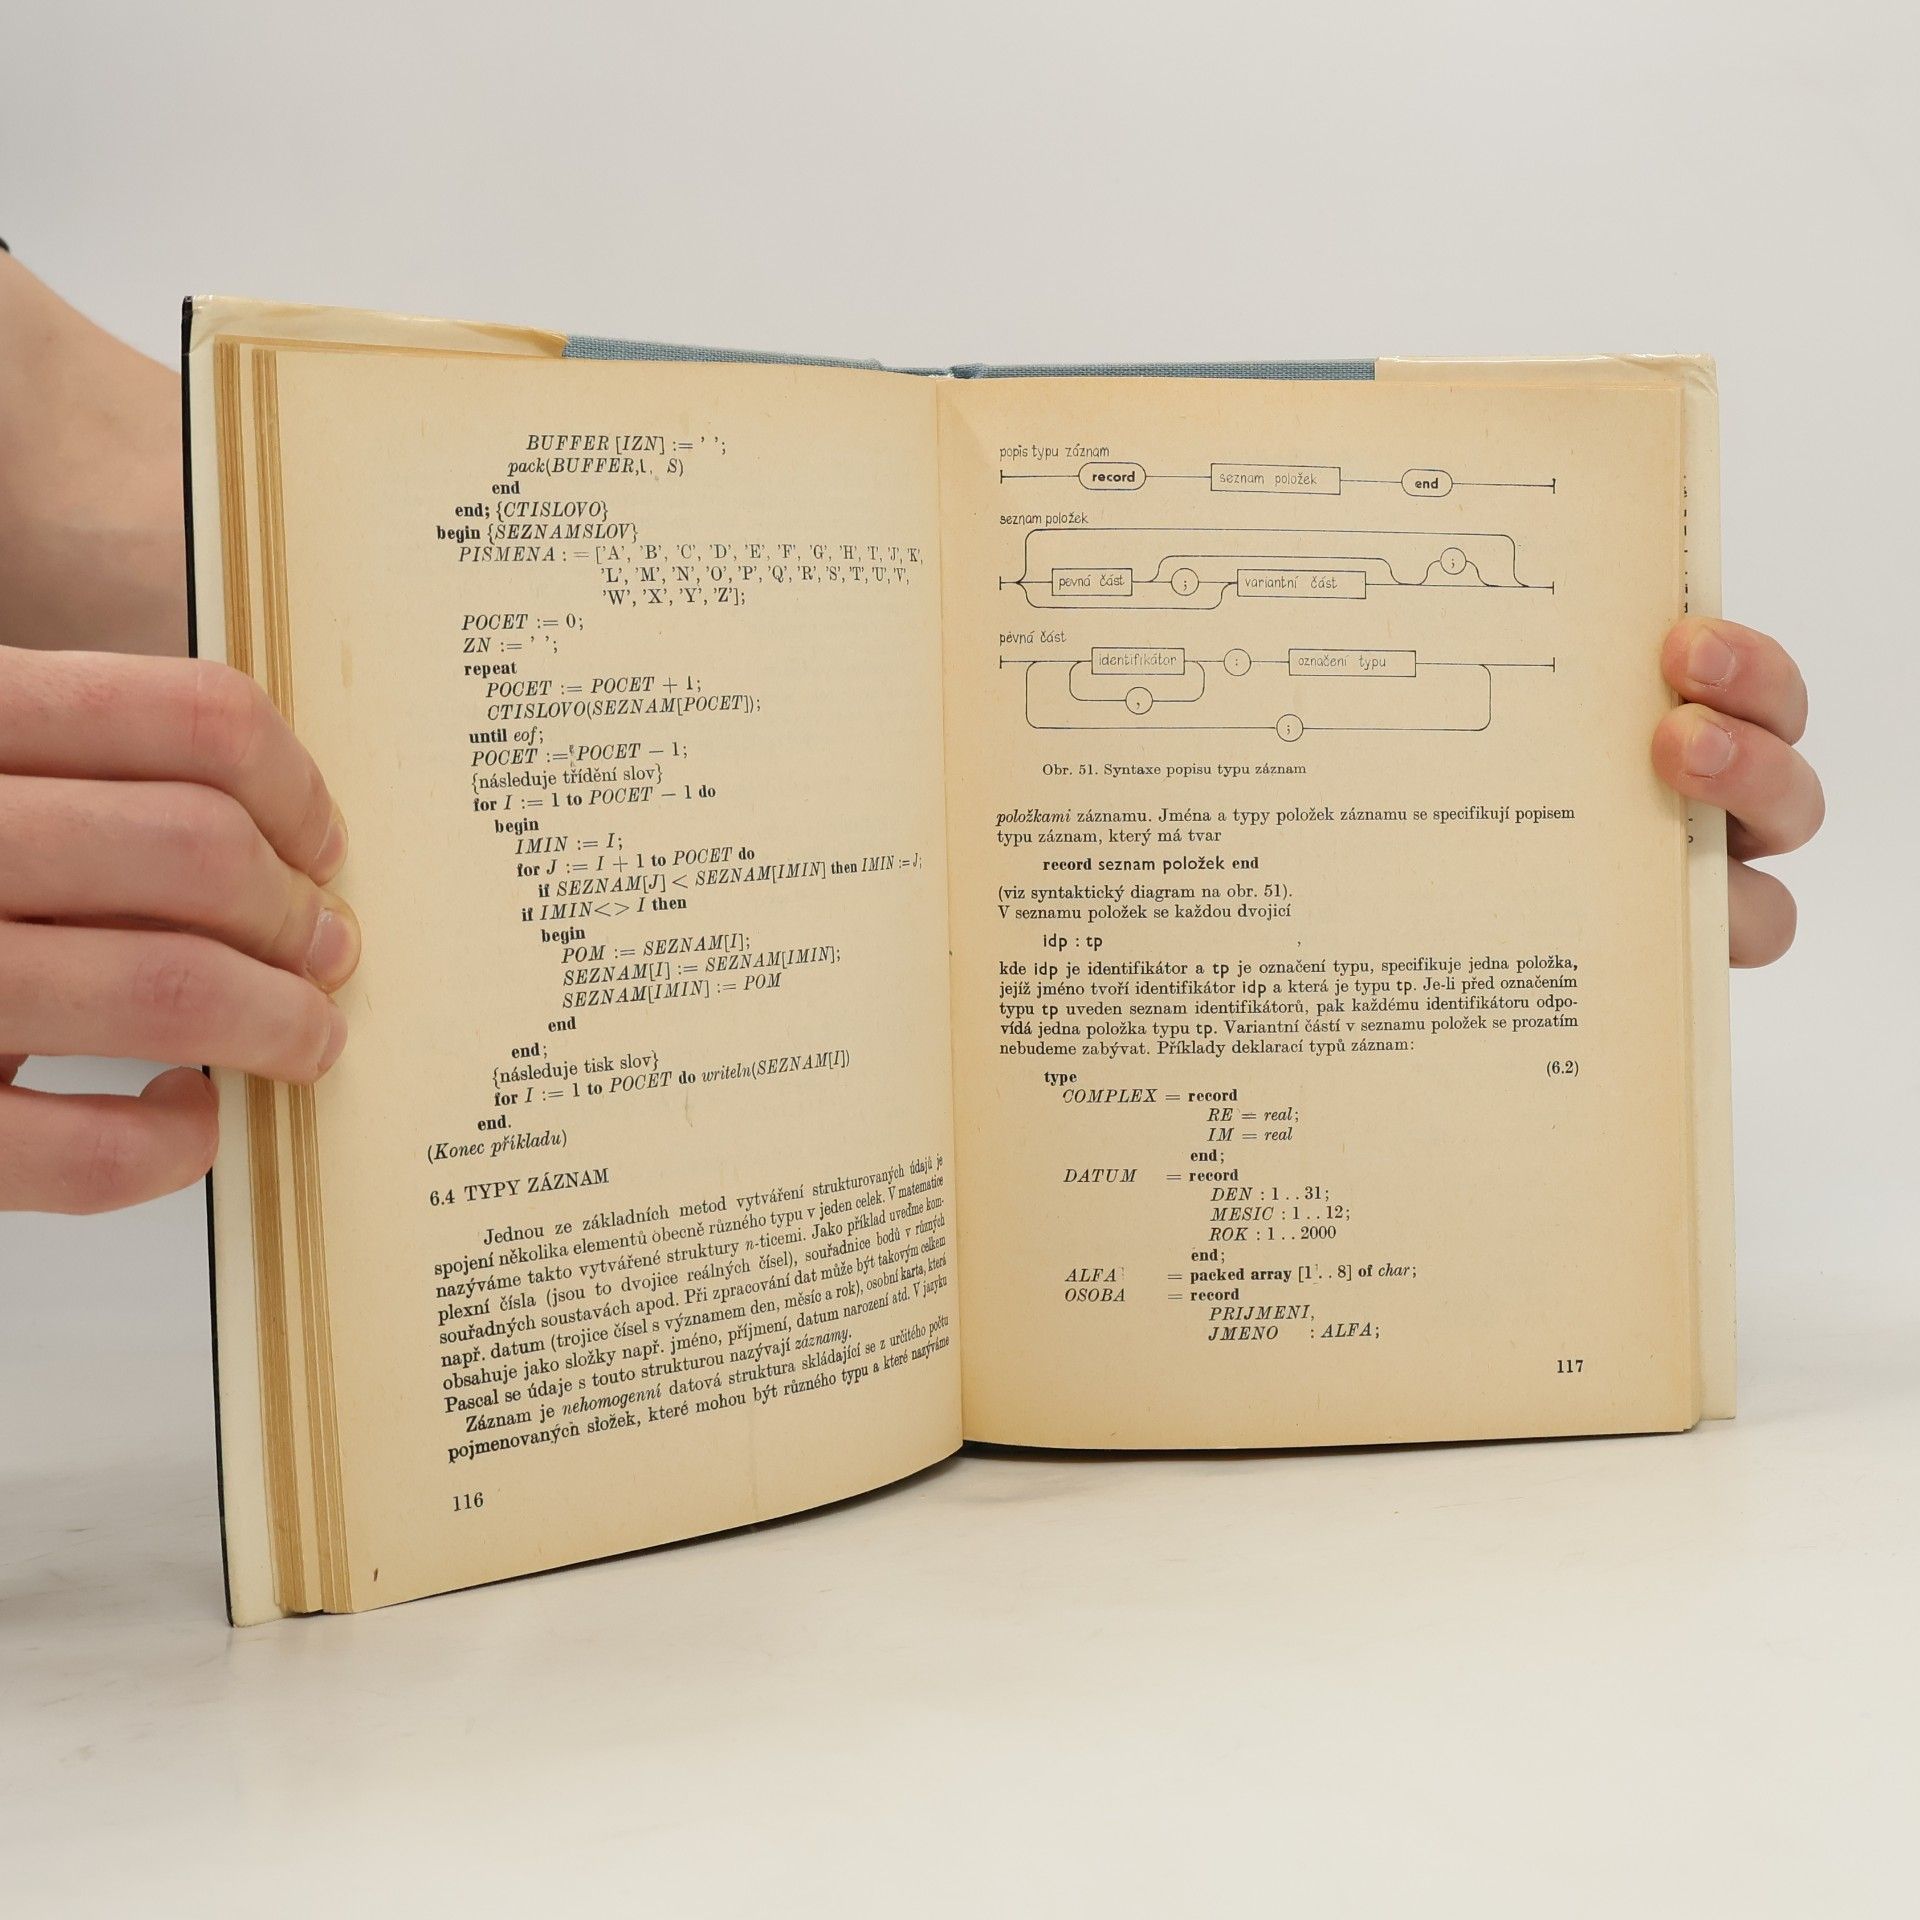 BUFFER [IZN] := ' ';
pack(BUFFER,1, S)
end
end; {CTISLOVO}
begin {SEZNAMSLOV}
PISMENA : = ['A', 'B', 'C', 'D', 'E', 'F', 'G', 'H', 'I', 'J', 'K',
'L', 'M', 'N', 'O', 'P', 'Q', 'R', 'S', 'T', 'U', 'V',
'W', 'X', 'Y', 'Z'];
POCET := 0;
ZN := ' ';
repeat
POCET := POCET + 1;
CTISLOVO(SEZNAM[POCET]);
until eof;
POCET := POCET − 1;
{následuje třídění slov}
for I := 1 to POCET − 1 do
begin
IMIN := I;
for J := I + 1 to POCET do
if SEZNAM[J] < SEZNAM[IMIN] then IMIN := J;
if IMIN<> I then
begin
POM := SEZNAM[I];
SEZNAM[I] := SEZNAM[IMIN];
SEZNAM[IMIN] := POM
end
end;
{následuje tisk slov}
for I := 1 to POCET do writeln(SEZNAM[I])
end.
(Konec příkladu)
6.4 TYPY ZÁZNAM
Jednou ze základních metod vytváření strukturovaných údajů je
spojení několika elementů obecně různého typu v jeden celek. V matematice
nazýváme takto vytvářené struktury n-ticemi. Jako příklad uveďme kom-
plexní čísla (jsou to dvojice reálných čísel), souřadnice bodů v různých
souřadných soustavách apod. Při zpracování dat může být takovým celkem
např. datum (trojice čísel s významem den, měsíc a rok), osobní karta, která
obsahuje jako složky např. jméno, příjmení, datum narození atd. V jazyku
Pascal se údaje s touto strukturou nazývají záznamy.
Záznam je nehomogenní datová struktura skládající se z určitého počtu
pojmenovaných složek, které mohou být různého typu a které nazýváme
116
popis typu záznam
record seznam položek end
seznam položek
;
pevná část ; variantní část
pevná část
identifikátor : označení typu
,
;
Obr. 51. Syntaxe popisu typu záznam
položkami záznamu. Jména a typy položek záznamu se specifikují popisem
typu záznam, který má tvar
record seznam položek end
(viz syntaktický diagram na obr. 51).
V seznamu položek se každou dvojicí
idp : tp ,
kde idp je identifikátor a tp je označení typu, specifikuje jedna položka,
jejíž jméno tvoří identifikátor idp a která je typu tp. Je-li před označením
typu tp uveden seznam identifikátorů, pak každému identifikátoru odpo-
vídá jedna položka typu tp. Variantní částí v seznamu položek se prozatím
nebudeme zabývat. Příklady deklarací typů záznam:
type (6.2)
COMPLEX = record
RE = real;
IM = real
end;
DATUM = record
DEN : 1 . . 31;
MESIC : 1 . . 12;
ROK : 1 . . 2000
end;
ALFA = packed array [1 . . 8] of char;
OSOBA = record
PRIJMENI,
JMENO : ALFA;
117